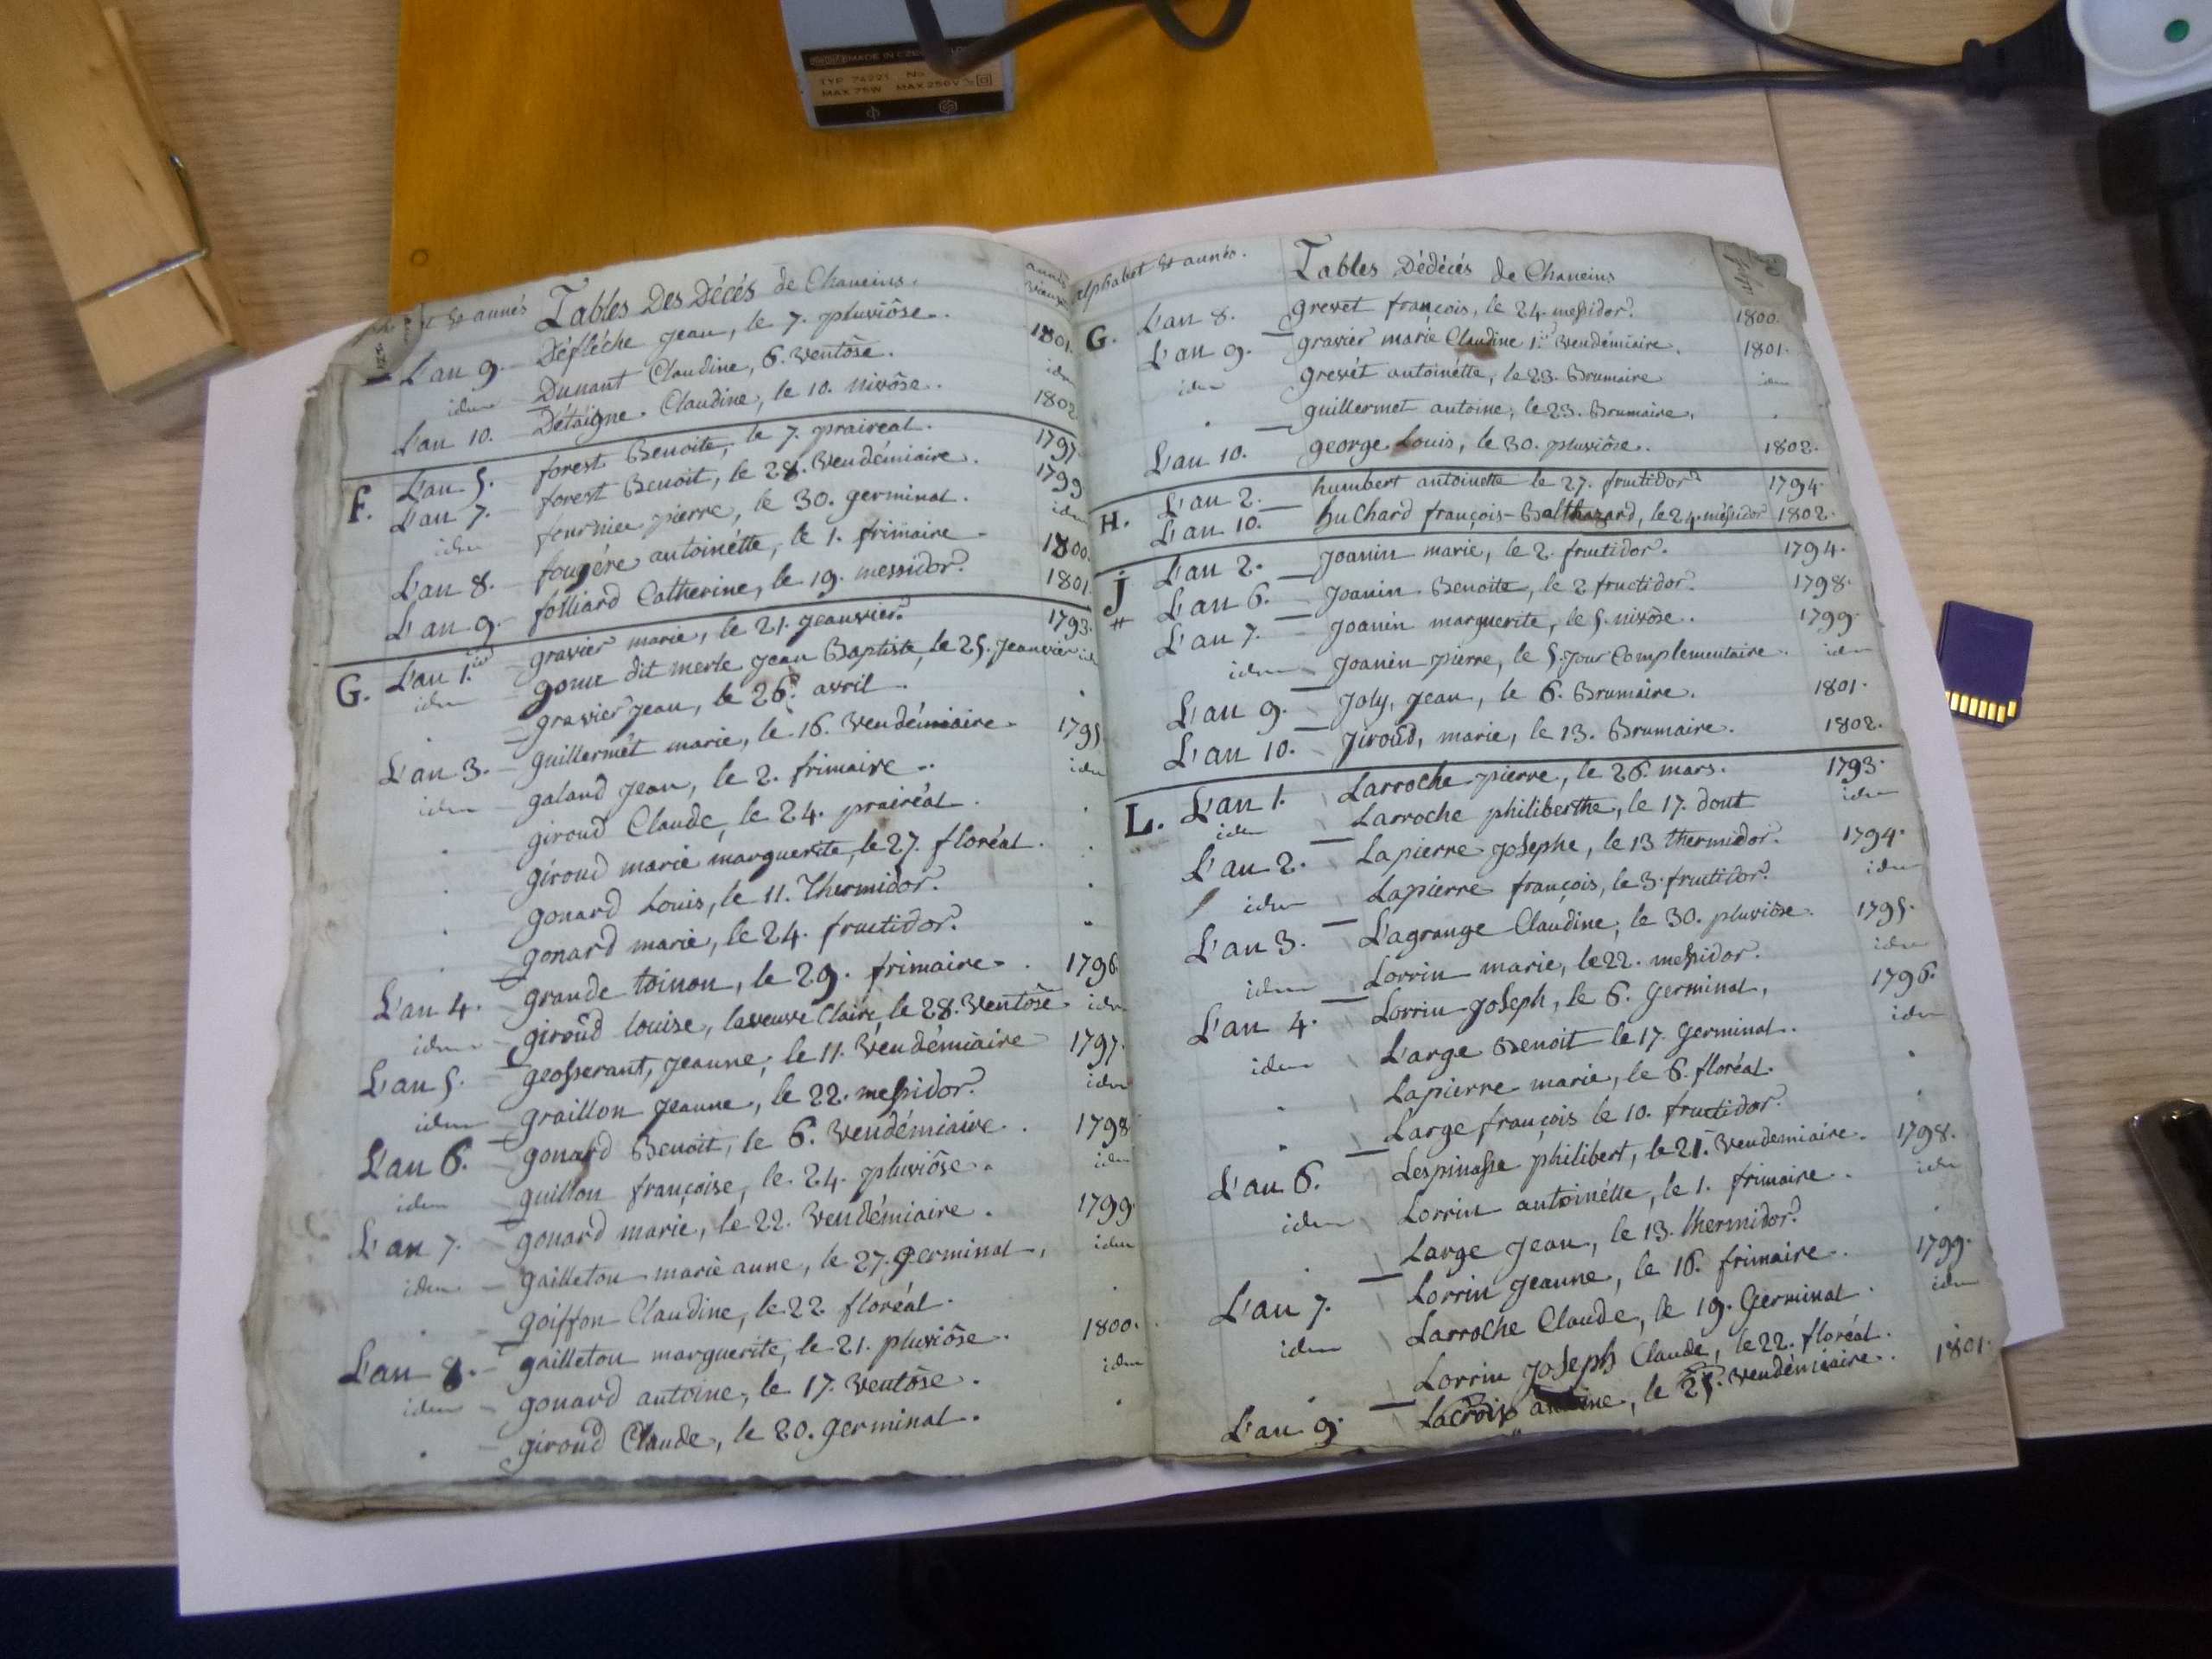 MADE IN CZECHOSLOV
TYP 74221 No
MAX 75W MAX 250V
t & annés Tables Des Décés de Chaneins. année vieux
L'an 9. Défléche Jean, le 7. pluviôse. 1801.
idem Dunant Claudine, 6. ventôse. idem
L'an 10. Détaigne Claudine, le 10. nivôse. 1802
F. L'an 5. forest Benoite, le 7. praireal. 1797.
L'an 7. forest Benoit, le 28. vendémiaire. 1799
idem fournier pierre, le 30. germinal. idem
L'an 8. fougére antoinétte, le 1. frimaire. 1800.
L'an 9. folliard Catherine, le 19. messidor. 1801
G. L'an 1.er gravier marie, le 21. jeanvier. 1793.
idem gonu dit merle jean Baptiste, le 25. jeanvier id
. gravier jean, le 26. avril. .
L'an 3. guillermét marie, le 16. vendémiaire. 1795
idem galand jean, le 2. frimaire. idem
giroud Claude, le 24. prairéal. .
. giroud marie marguerite, le 27. floréal. .
. gonard Louis, le 11. Thermidor. .
. gonard marie, le 24. fructidor. .
L'an 4. grande toinon, le 29. frimaire. 1796
idem giroud louise, la veuve Claire, le 28. ventôse. idem
L'an 5. geosserant, jeanne, le 11. vendémiaire 1797.
idem graillon jeanne, le 22. messidor. idem
L'an 6. gonard Benoit, le 6. vendémiaire. 1798
idem guillon françoise, le 24. pluviôse. idem
L'an 7. gonard marie, le 22. vendémiaire. 1799.
idem gailleton marie anne, le 27. germinal, idem
. goiffon Claudine, le 22. floréal. .
L'an 8. gailleton marguerite, le 21. pluviôse. 1800.
idem gonard antoine, le 17. ventôse. idem
. giroud Claude, le 20. germinal. .
alphabet & année. Tables Dédécés de Chaneins
G. L'an 8. grevet françois, le 24. messidor. 1800.
L'an 9. gravier marie Claudine 1.er vendémiaire. 1801.
idem grevét antoinétte, le 23. Brumaire idem
. guillermet antoine, le 23. Brumaire, .
L'an 10. george Louis, le 30. pluviôse. 1802.
H. L'an 2. humbert antoinette le 27. fructidor 1794.
L'an 10. huchard françois-Balthazard, le 24. méssidor 1802.
J L'an 2. Joanin marie, le 2. fructidor. 1794.
L'an 6. Joanin Benoite, le 2 fructidor. 1798.
L'an 7. Joanin marguerite, le 5. nivôse. 1799.
idem Joanin pierre, le 5. jour Complementaire. idem
L'an 9. Joly, Jean, le 6. Brumaire. 1801.
L'an 10. Jiroud, marie, le 13. Brumaire. 1802.
L. L'an 1. Larroche pierre, le 26. mars. 1793.
idem Larroche philiberthe, le 17. dout idem
L'an 2. Lapierre Josephe, le 13 thermidor. 1794.
idem Lapierre françois, le 3. fructidor. idem
L'an 3. L'agrange Claudine, le 30. pluviôse. 1795.
idem Lorrin marie, le 22. messidor. idem
L'an 4. Lorrin Joseph, le 6. Germinal, 1796.
idem L'arge Benoit le 17. Germinal. idem
. Lapierre marie, le 6. floréal. .
. Large françois le 10. fructidor. .
L'an 6. Lespinasse philibert, le 21. vendemiaire. 1798.
idem Lorrin antoinétte, le 1. frimaire. idem
. Large Jean, le 13. thermidor. .
L'an 7. Lorrin Jeanne, le 16. frimaire. 1799.
idem Larroche Claude, le 19. Germinal. idem
. Lorrin Joseph Claude, le 22. floréal. .
L'an 9. Lacroix antoine, le 25. vendémiaire. 1801.